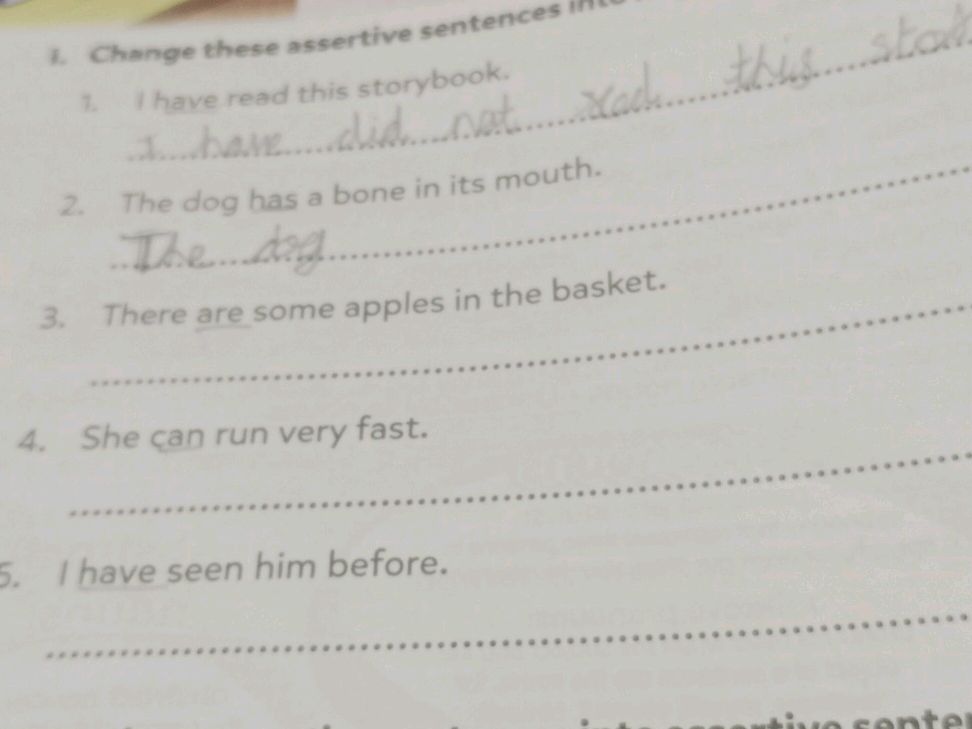 1. Change these assertive sentences into
1. I have read this storybook.
I have did not read this
2. The dog has a bone in its mouth.
The dog
3. There are some apples in the basket.
4. She can run very fast.
5. I have seen him before.
into assertive